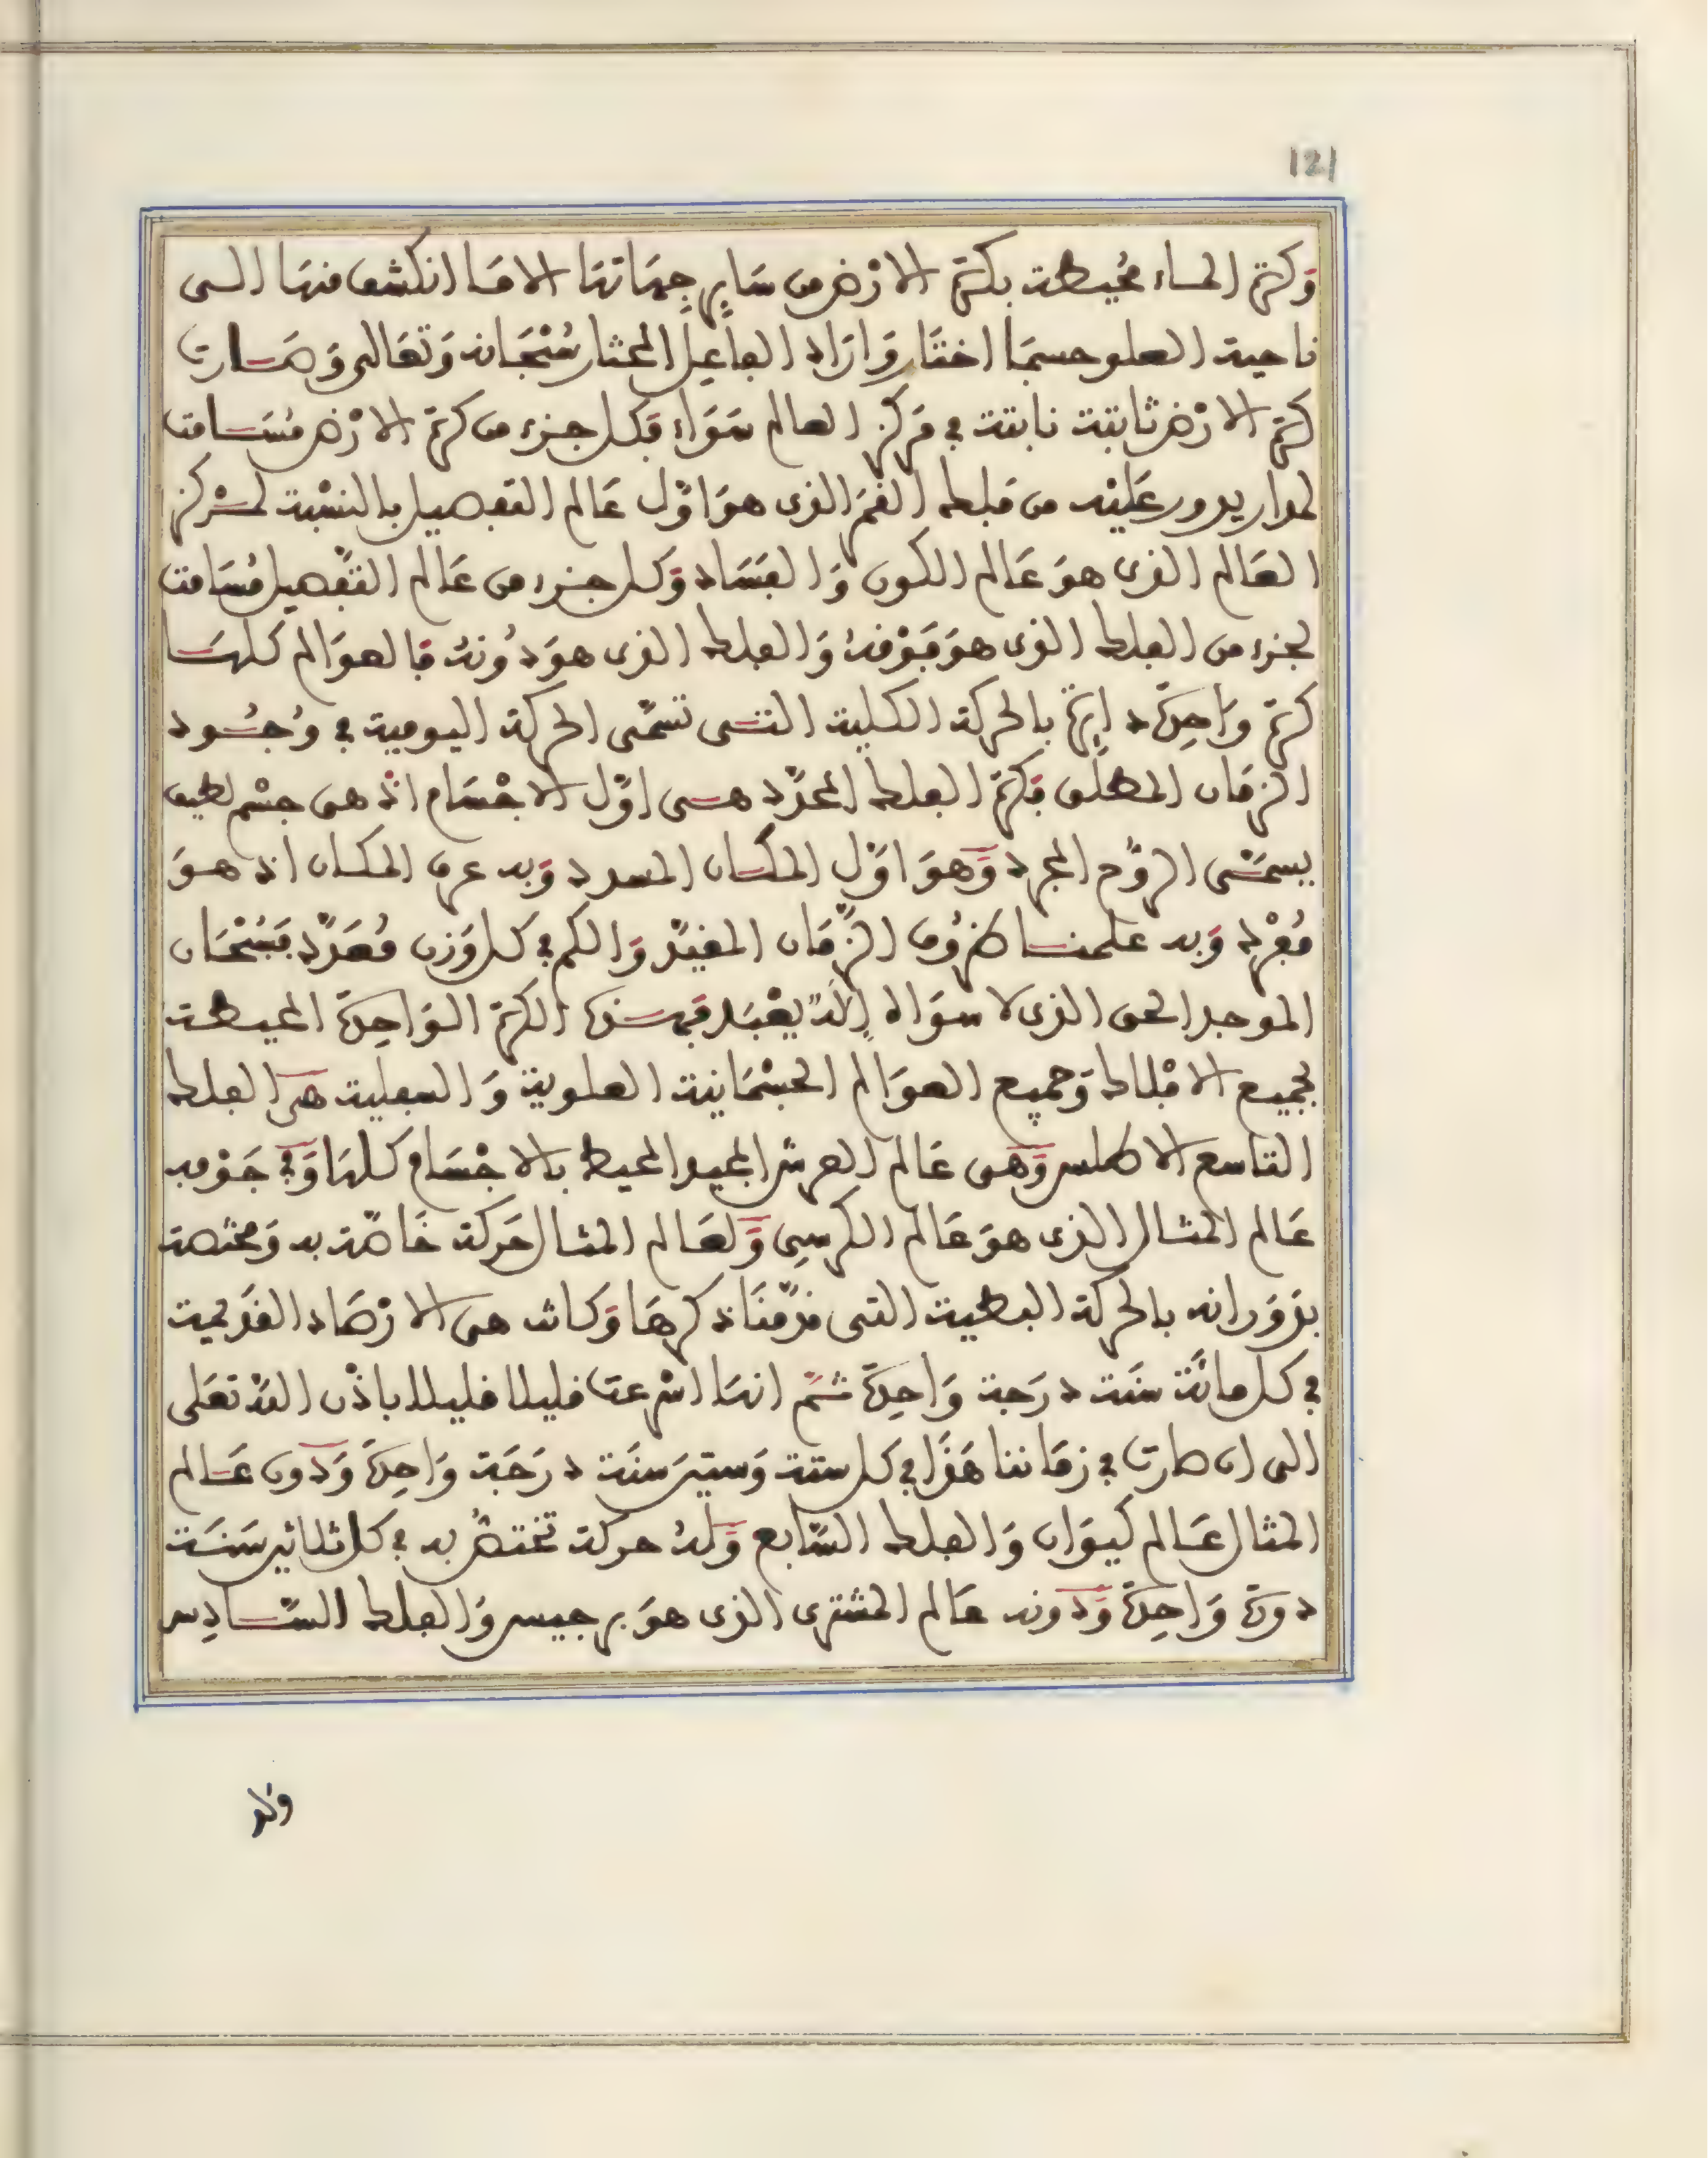 121
وَكرة الماء محُيطة بكرة الارْض من سَاير جِهَاتهَا الا مَا انكشف منهَا الى
ناحية العلو حسبمَا اختَار وَارَاد الفاعِل المختار سُبْحَانه وَتعَالى وَصَارت
كرة الارْض ثابتة نابتة في مَركز العالم سَوَاء فكل جزء من كرة الارْض مُسَامت
لمدار يدور عَليْه من فلك القمَر الذى هوَ اوّل عَالم التفصيل بالنسْبة لمركز
العَالم الذى هوَ عَالم الكون وَالفسَاد وَكل جزء من عَالم التفْصيل مُسَامت
لجزء من الفلك الذى هوَ فَوْقهُ وَالفلك الذى هوَ دُونهُ فَالعوَالم كلهَا
كرة وَاحِدَة دايرَة بالحركة الكلية التى تسَمّى الحركة اليومية في وُجُود
الزمَان المطلَق فكرة الفلك المحدّد هى اوّل الاجْسَام اذْ هى جسْم لطيف
يسمَّى الرّوح المجرد وَهوَ اوّل المكان وَبه عرف المكان اذ هوَ
مُفْرد وَبه علمنا ظرُوف الزّمَان المقيّد وَالكم في كل وَزن مُعَدّد فسُبْحَان
الموجد الحق الذى لا سوَاه إلاهٌ يعْبَد فهذه الكرة الوَاحِدَة المحيطة
بجميع الافْلاك وَجميع العوَالم الجسْمَانية العلوية وَالسفلية هى الفلك
التاسع الاطلس وَهى عَالم العرش المجيد المحيط بالاجْسَام كلهَا وَفي جَوْفه
عَالم المثال الذى هوَ عَالم الكرسِى وَلعَالم المثال حَركة خَاصّة به وَمختصة
بدَوَرانه بالحركة البطية التى قدّمنَا ذكرهَا وَكانت هى الارْصَاد القَديمية
في كل مائَة سنَة درَجة وَاحِدَة ثمَّ انهَا اسْرعت قليلا قليلا باذْن اللهْ تعَلى
الى ان صارت في زمَاننا هَذَا في كل ستة وَستين سنَة درَجَة وَاحِدَة وَدون عَالم
المثال عَالم كيوَان وَالفلك السّابع وَلهُ حركة تختصُّ به في كل ثلاثين سَنَة
دورَة وَاحِدَة وَدونه عَالم المشترى الذى هوَ برجيس وَالفلك السّادِس
وَلهُ